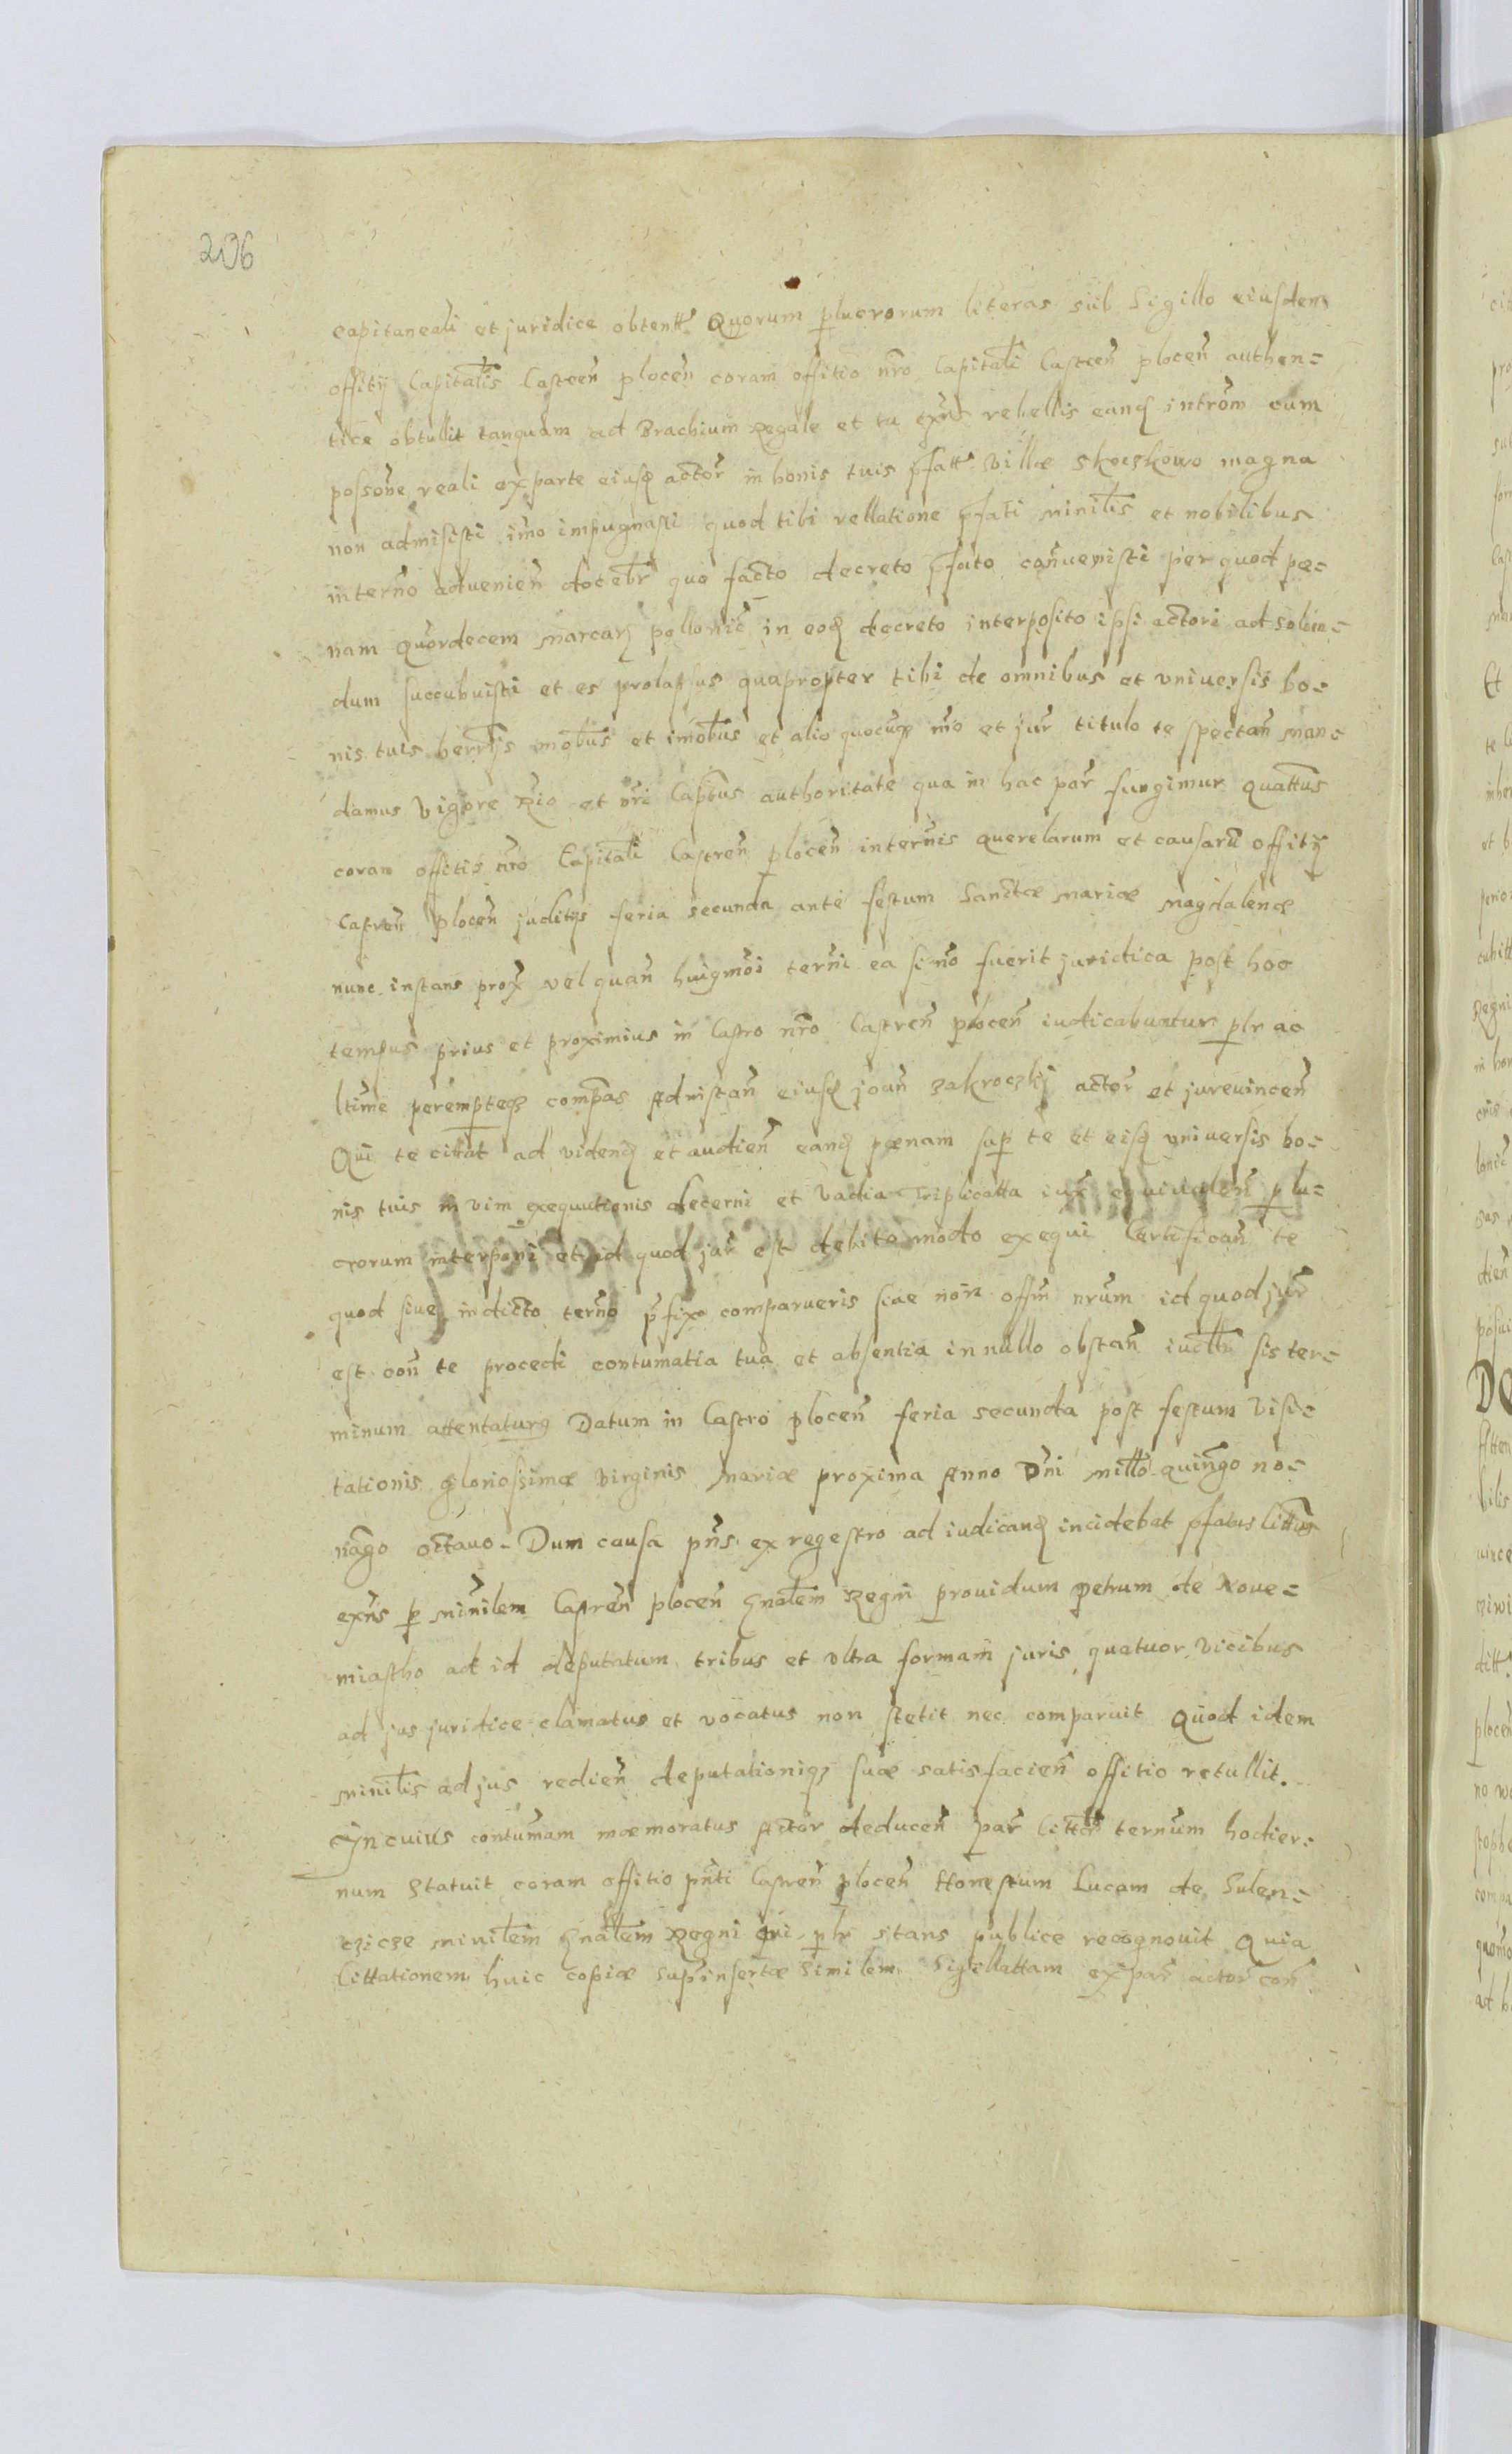 206
capitaneali et juridice obtentt Quorum plucrorum literas sub Sigillo eiusdem
offitij Capitalis Castren plocen coram offitio nro Capitali Castren plocen authen=
tice obtullit tanquam ad Brachium Regale et tu exns rebellis eanq introm cum
possone reali ex parte eiusq actor in bonis tuis pfatt villæ skoczkowo magna
non admisisti imo impugnasti quod tibi rellatione pfati minilis et nobilibus
in terno advenien docebr quo facto decreto pfato conuenisti per quod pæ=
nam quordecem marcarq pollonic in eoq decreto interposito ipsi actori ad solen=
dum succubuisti et es prolapsus quapropter tibi de omnibus et vniuersis bo=
nis tuis herrijs mobus et imobus et alio quocunq mo et jur titulo te spectan man=
damus vigore Rio et nri Captus authoritate qua in hac par fungimur quattus
coram offitio nro Capitali Castren plocen in ternis querelarum et causaru offitij
Castren plocen juditijs feria secunda ante festum Sanctæ mariæ magdalenæ
nunc instans prox vel quan huigmoi terni ea si no fuerit juridica post hoc
tempus prius et proximius in Castro nro Castren plocen iudicabuntur plr ac
ltime perempteq compas Ad instan eiusq joan zakroczkij actor et jurevincen
Qui te cittat ad videnq et audien eanq pænam sup te et eisq vniuersis bo=
nis tuis in vim exequutionis decerni et vadia Triplicatta iux equiualen plu=
crorum interponi et id quod jur est debito modo exequi Certifican te
quod siue in dicto terno pfixo comparueris siue non offm nrum id quod jur
est con te procedi contumatia tua et absentia in nullo obstan iudltr sis ter=
minum attentaturq Datum in Castro plocen feria secunda post festum visi=
tationis gloriosissimæ virginis mariæ proxima Anno Dni millo quingo no=
nago octauo. Dum causa pns ex regestro ad iudicanq incidebat pfatus littus
exns p minilem Castren plocen gnalem Regni prouidum petrum de Noue=
miastho ad id deputatum tribus et vltra formam juris quatuor vicibus
ad jus juridice clamatus et vocatus non stetit nec comparuit Quod idem
minilis ad jus redien deputationiq suæ satisfacien offitio retullit.
In cuius contumam mæmoratus Actor deducen par litter ternum hodier=
num statuit coram offitio pnti Castren plocen Honestum Lucam de Sulen=
czicze minilem gnalem Regni qui plr stans publice recognouit Quia
littationem huic copiæ sup insertæ similem sigillattam ex par actor con